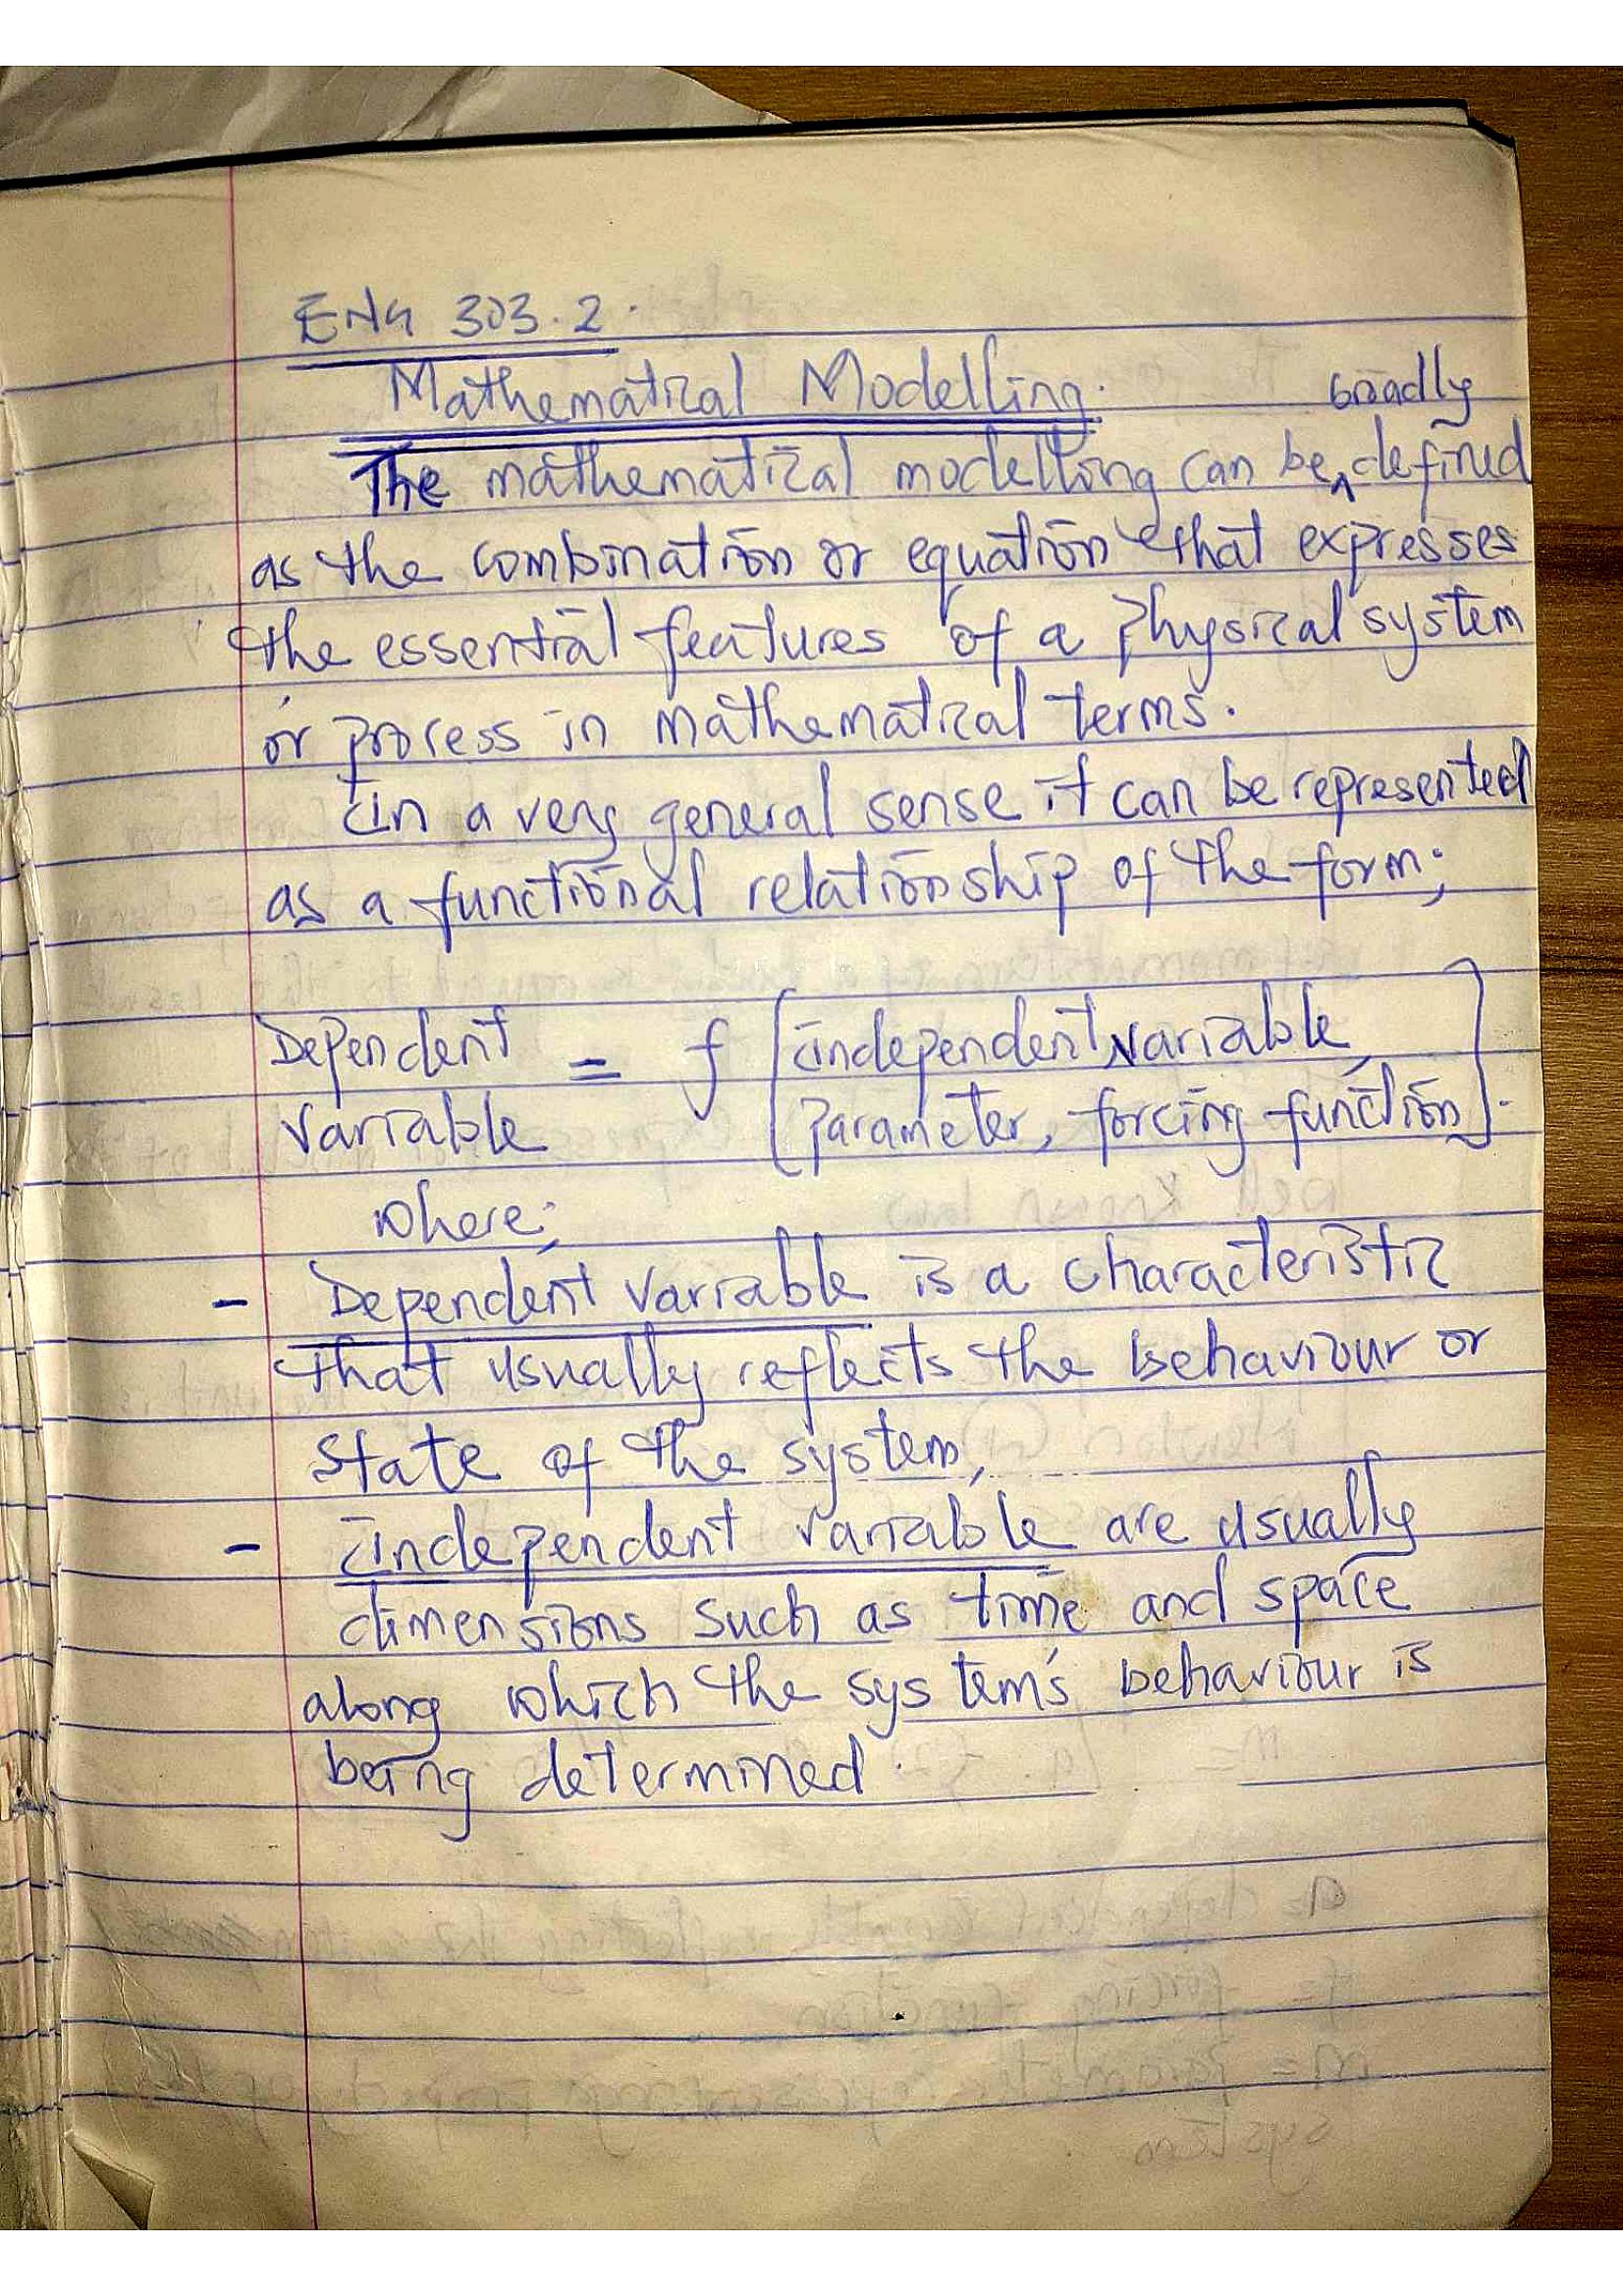 ENG 303.2.
Mathematical Modelling.
broadly
The mathematical modelling can be ^ defined
as the combination or equation that expresses
the essential features of a physical system
or process in mathematical terms.
in a very general sense it can be represented
as a functional relationship of the form;
Dependent variable = f [independent variable,
parameter, forcing function].
where;
- Dependent variable is a characteristic
that usually reflects the behaviour or
state of the system,
- independent variable are usually
dimensions such as time and space
along which the system's behaviour is
being determined.